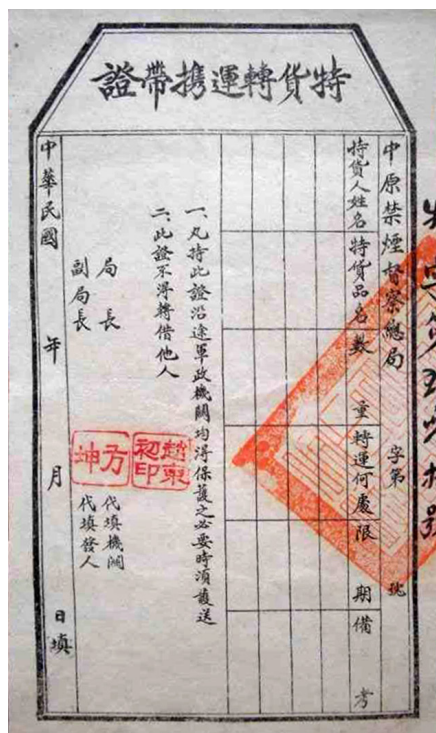 特貨轉運攜帶證
中原禁煙督察總局 字第 號
持貨人姓名 特貨品名 數重 轉運何處 限期 備考
一、凡持此證沿途軍政機關均得保護之必要時須護送
二、此證不得轉借他人
局長 趙東初印 代填機關
副局長 方坤 代填發人
中華民國 年 月 日填